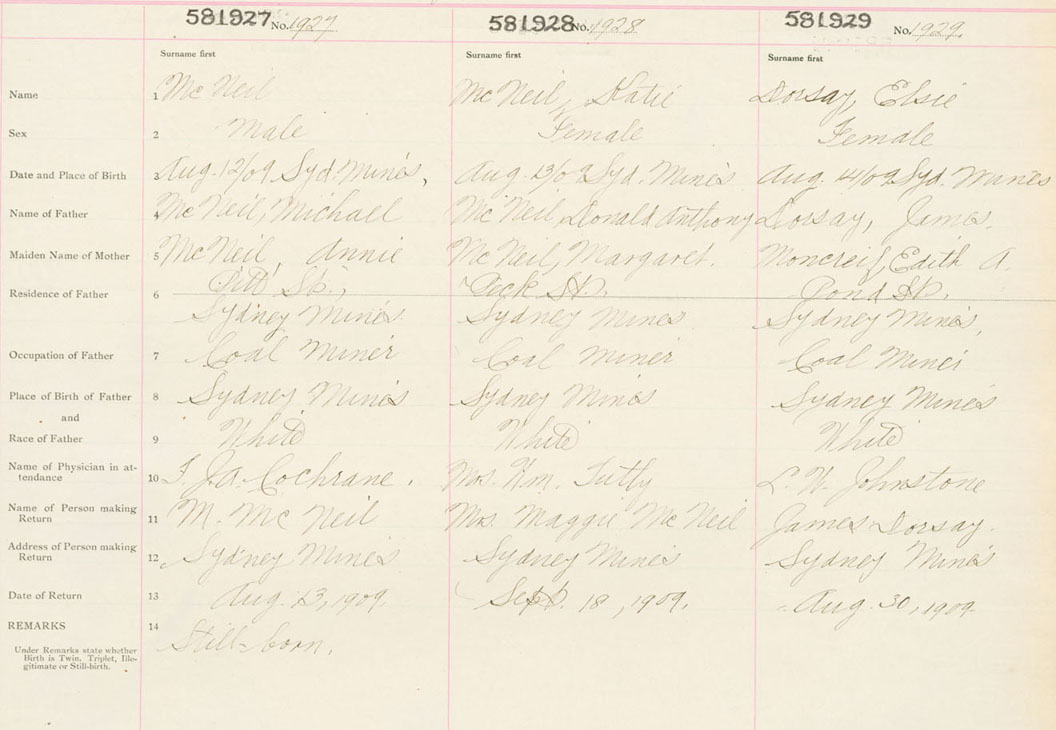 581927 No. 1927 581928 No. 1928 581929 No. 1929
Surname first Surname first Surname first
Name 1 McNeil McNeil, Katie Dorsay, Elsie
Sex 2 Male Female Female
Date and Place of Birth 3 Aug. 12/09 Syd. Mines, Aug. 13/09 Syd. Mines Aug. 4/09 Syd. Mines
Name of Father 4 McNeil, Michael McNeil, Donald Anthony Dorsay, James.
Maiden Name of Mother 5 McNeil, Annie McNeil, Margaret. Moncreif, Edith A.
Residence of Father 6 Pitt St., Peck St. Pond St.
Sydney Mines. Sydney Mines Sydney Mines,
Occupation of Father 7 Coal Miner Coal Miner Coal Miner
Place of Birth of Father 8 Sydney Mines Sydney Mines Sydney Mines
and
Race of Father 9 White White White
Name of Physician in at-
tendance 10 J.A. Cochrane. Mrs. Wm. Tutty L. W. Johnstone
Name of Person making
Return 11 M. McNeil Mrs. Maggie McNeil James Dorsay.
Address of Person making
Return 12 Sydney Mines Sydney Mines Sydney Mines
Date of Return 13 Aug. 13, 1909. Sept. 18, 1909. Aug. 30, 1909
REMARKS 14
Still-born.
Under Remarks state whether
Birth is Twin, Triplet, Ille-
gitimate or Still-birth.